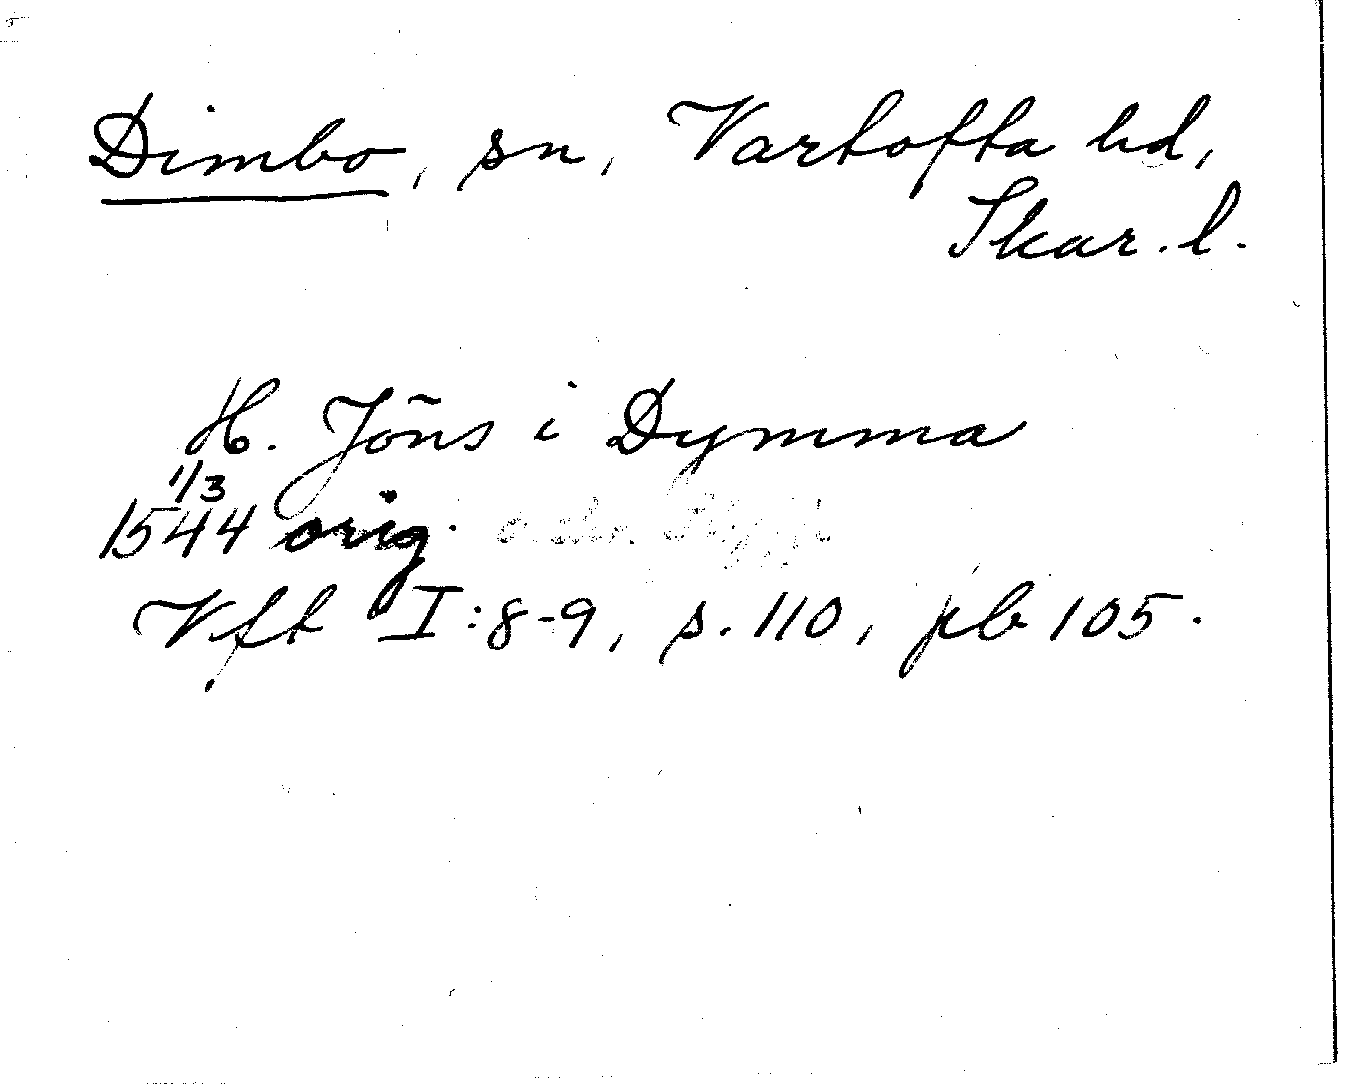 Dimbo, sn, Vartofta hd,
Skar. l.
H. Jöns i Dymma
1/3
1544 orig.
Vft I:8-9, s. 110, pb 105.